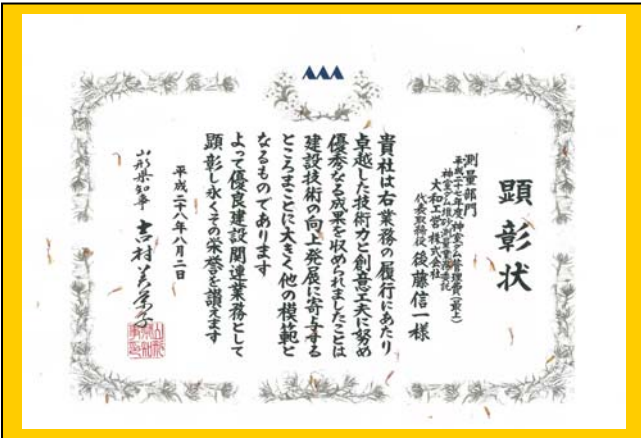 顕彰状
測量部門
平成二十七年度 神室ダム管理費(最上)
神室ダム堆砂測量業務委託
大和工営株式会社
代表取締役 後藤信一様
貴社は右業務の履行にあたり
卓越した技術力と創意工夫に努め
優秀なる成果を収められましたことは
建設技術の向上発展に寄与する
ところまことに大きく他の模範と
なるものであります
よって優良建設関連業務として
顕彰し永くその栄誉を讃えます
平成二十八年八月二日
山形県知事 吉村美栄子